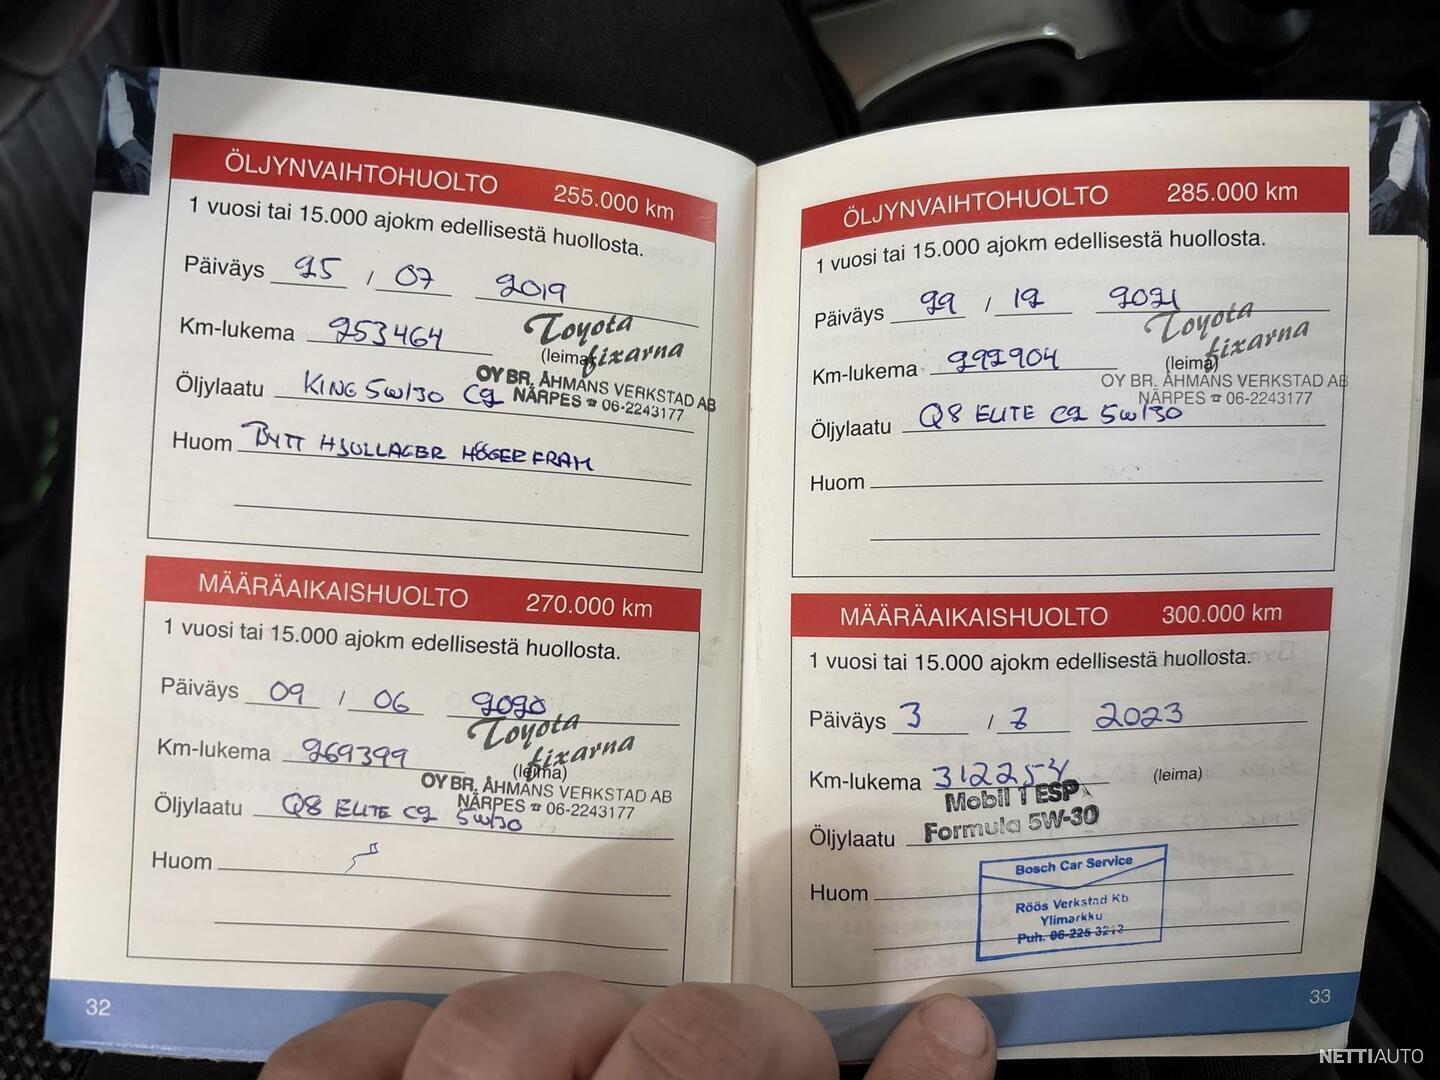 ÖLJYNVAIHTOHUOLTO 255.000 km
1 vuosi tai 15.000 ajokm edellisestä huollosta.
Päiväys 25 / 07 2019
Km-lukema 253464
Toyota
fixarna
(leima)
OY BR. ÅHMANS VERKSTAD AB
NÄRPES ☎ 06-2243177
Öljylaatu KING 5W/30 C2
Huom BYTT HJULLAGER HÖGER FRAM
MÄÄRÄAIKAISHUOLTO 270.000 km
1 vuosi tai 15.000 ajokm edellisestä huollosta.
Päiväys 09 / 06 2020
Km-lukema 269399
Toyota
fixarna
(leima)
OY BR. ÅHMANS VERKSTAD AB
NÄRPES ☎ 06-2243177
Öljylaatu Q8 ELITE C2 5W/30
Huom
32
ÖLJYNVAIHTOHUOLTO 285.000 km
1 vuosi tai 15.000 ajokm edellisestä huollosta.
Päiväys 29 / 12 2021
Km-lukema 292904
Toyota
fixarna
(leima)
OY BR. ÅHMANS VERKSTAD AB
NÄRPES ☎ 06-2243177
Öljylaatu Q8 ELITE C2 5W/30
Huom
MÄÄRÄAIKAISHUOLTO 300.000 km
1 vuosi tai 15.000 ajokm edellisestä huollosta.
Päiväys 3 / 2023
Km-lukema (leima)
Mobil 1 ESP
Formula 5W-30
Öljylaatu
Huom
Bosch Car Service
Röös Verkstad Kb
Ylimarkku
Puh. 06-225 3212
33
NETTIAUTO